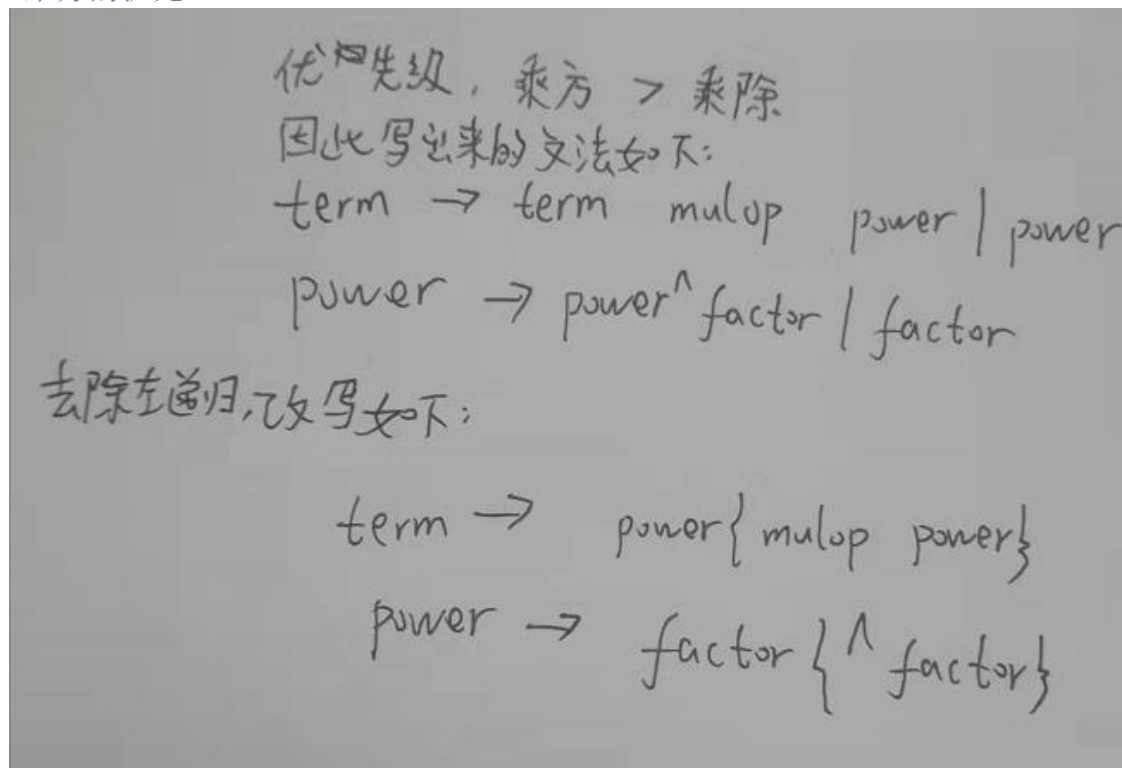 优先级，乘方 > 乘除
因此写出来的文法如下:
term → term mulop power | power
power → power ^ factor | factor
去除左递归,改写如下:
term → power{ mulop power}
power → factor { ^ factor}